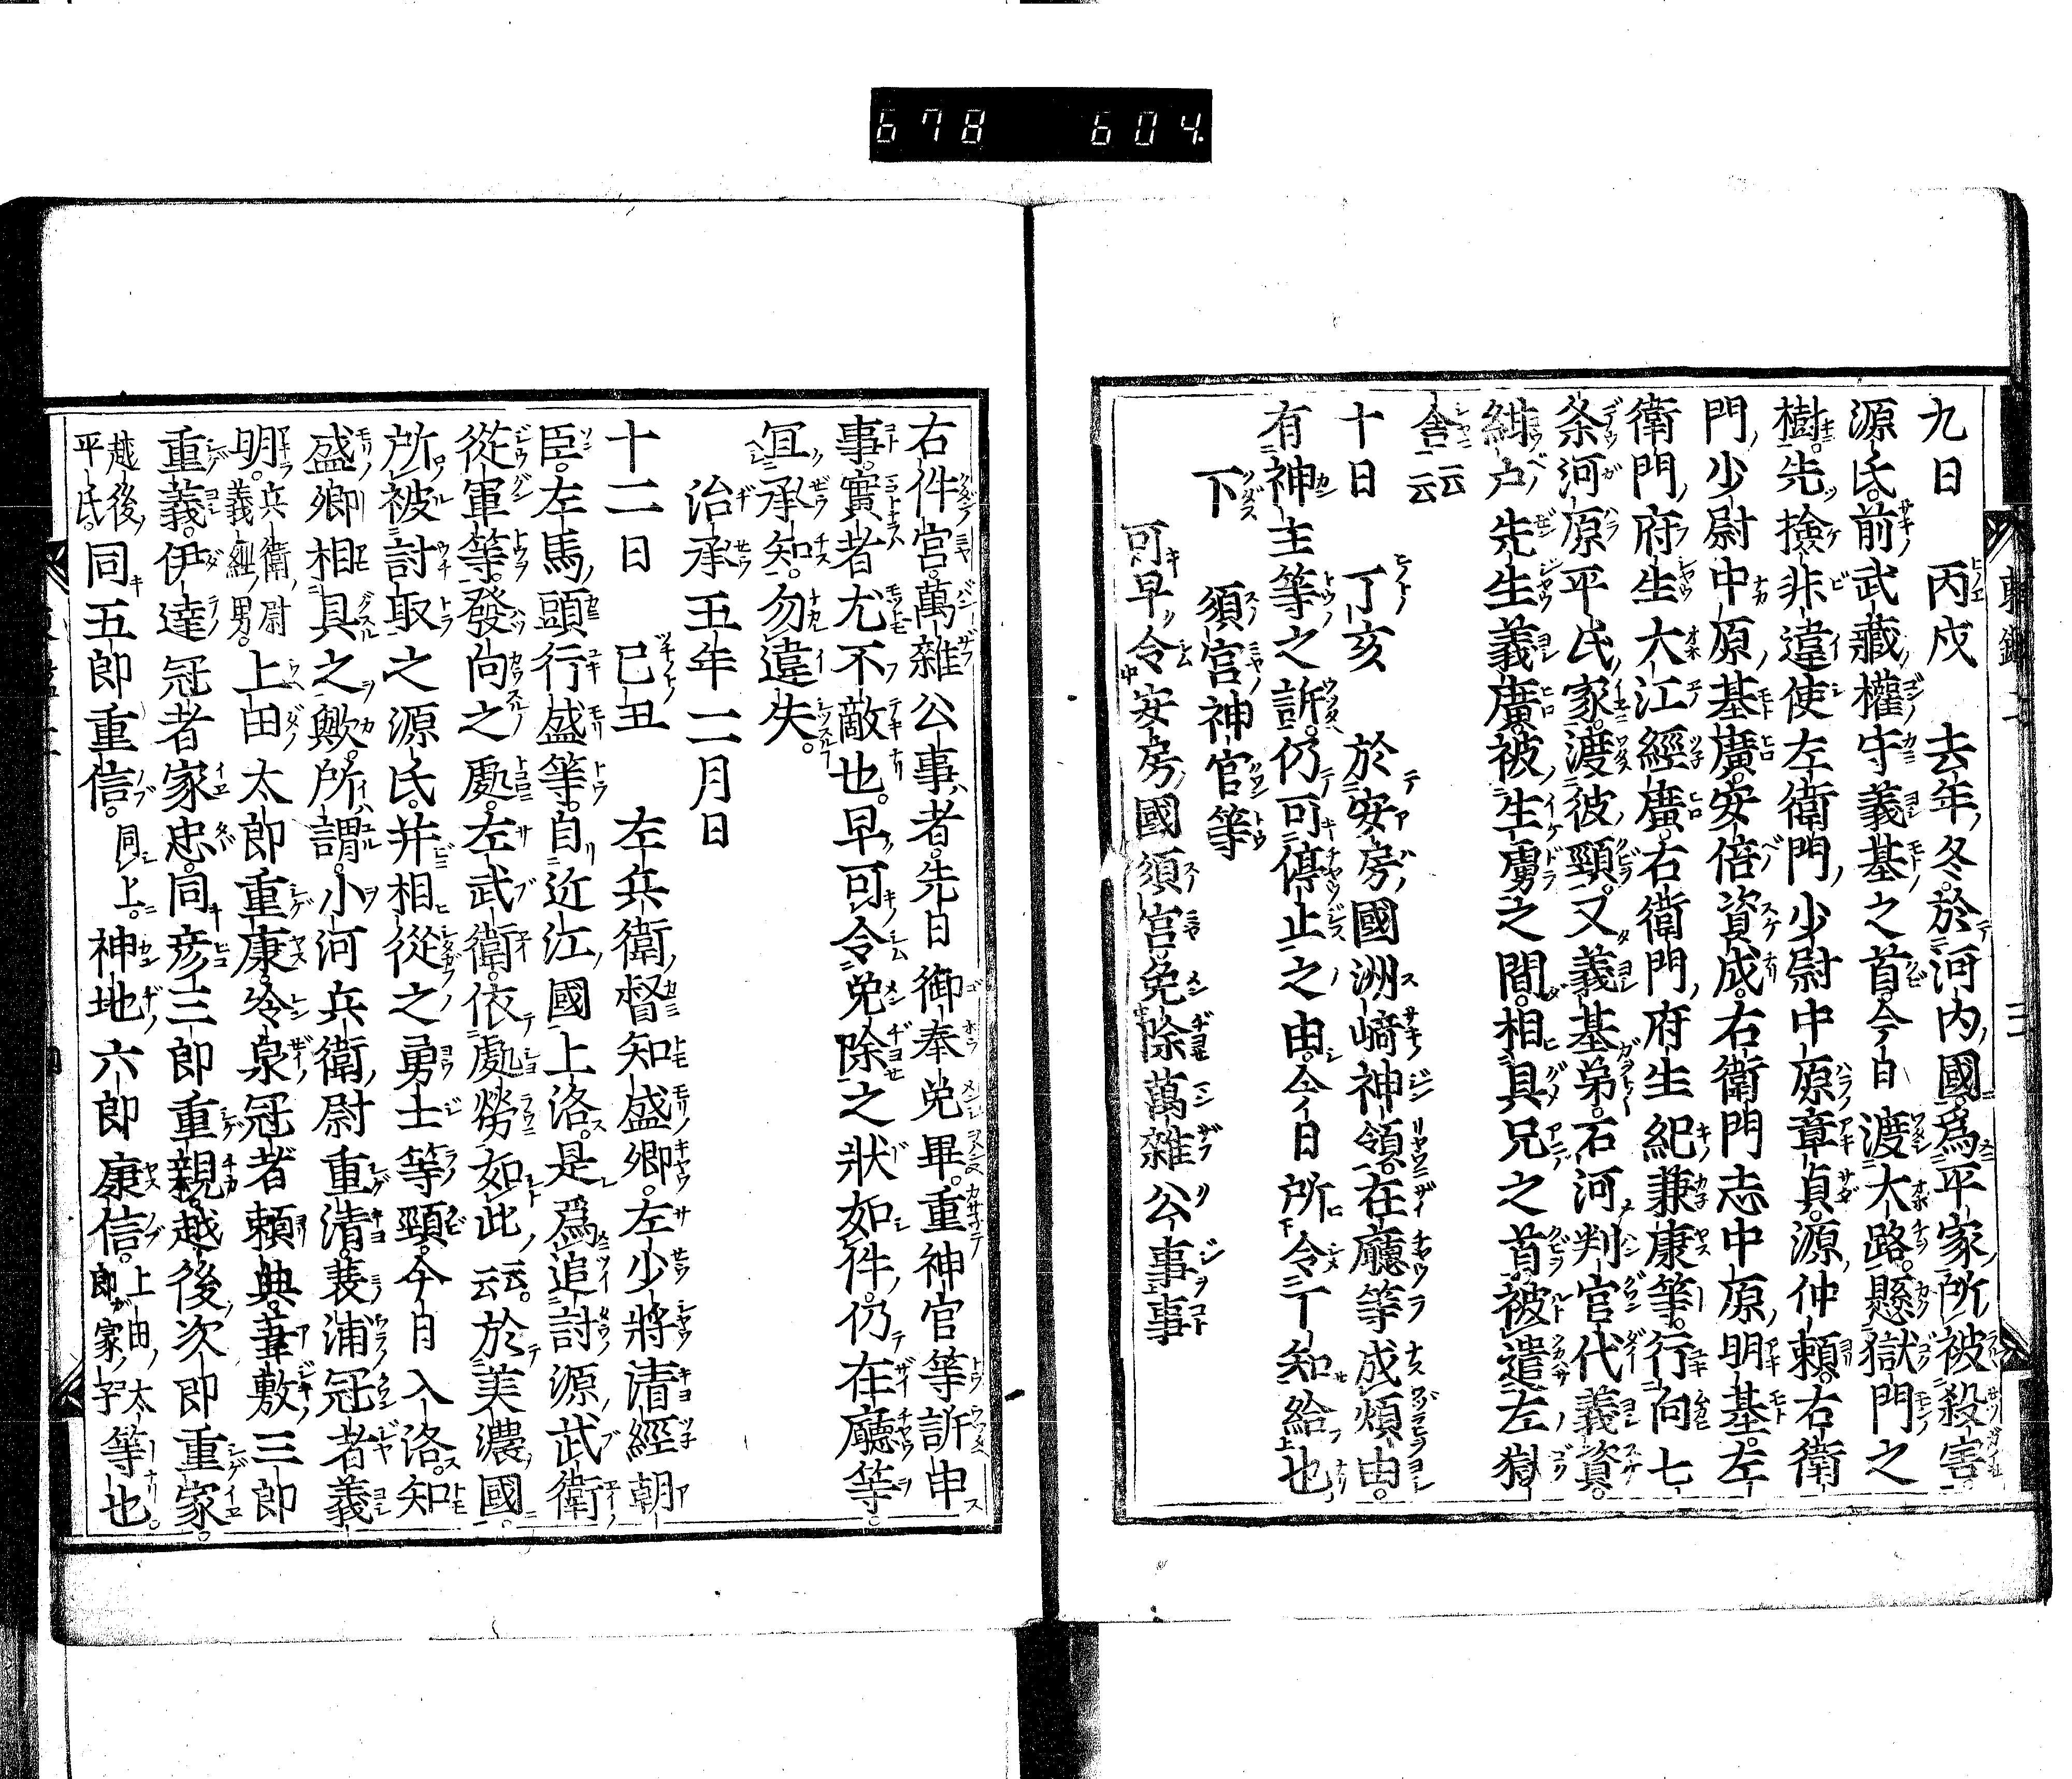 678 604
九日 丙戌 去年冬。於河内國。爲平家所被殺害。
源氏。前武藏權守義基之首。今日渡大路。懸獄門之
樹。先撿非違使左衛門少尉中原章貞。源仲頼。右衛
門少尉中原基廣。安倍資成。右衛門志中原明基。左
衛門府生大江經廣。右衛門府生紀兼康等。行向七
条河原平氏家。渡彼頸。又義基弟。石河判官代義資。
紺戸先生義廣。被生虜之間。相具兄之首。被遣左獄
舎云云
十日 丁亥 於安房國洲﨑神領。在廳等成煩由。
有神主等之訴。仍可停止之由。今日所令下知給也
下 須宮神官等
可早令安房國須宮免除萬雜公事事
右件宮。萬雜公事者。先日御奉免畢。重神官等訴申
事。實者尤不敵也。早可令免除之狀如件。仍在廳等。
冝承知。勿違失。
治承五年二月日
十二日 己丑 左兵衛督知盛卿。左少將清經朝
臣。左馬頭行盛等。自近江國上洛。是爲追討源武衛
從軍等。發向之處。左武衛。依處勞如此云云。於美濃國。
所被討取之源氏。并相從之勇士等頸。今日入洛。知
盛卿相具之歟。所謂。小河兵衛尉重清。蓑浦冠者義
明。兵衛尉義經男。上田太郎重康。冷泉冠者頼典。葦敷三郎
重義。伊達冠者家忠。同彦三郎重親。越後次郎重家。
越後平氏。同五郎重信。同上。神地六郎康信。上田太郎家子等也。